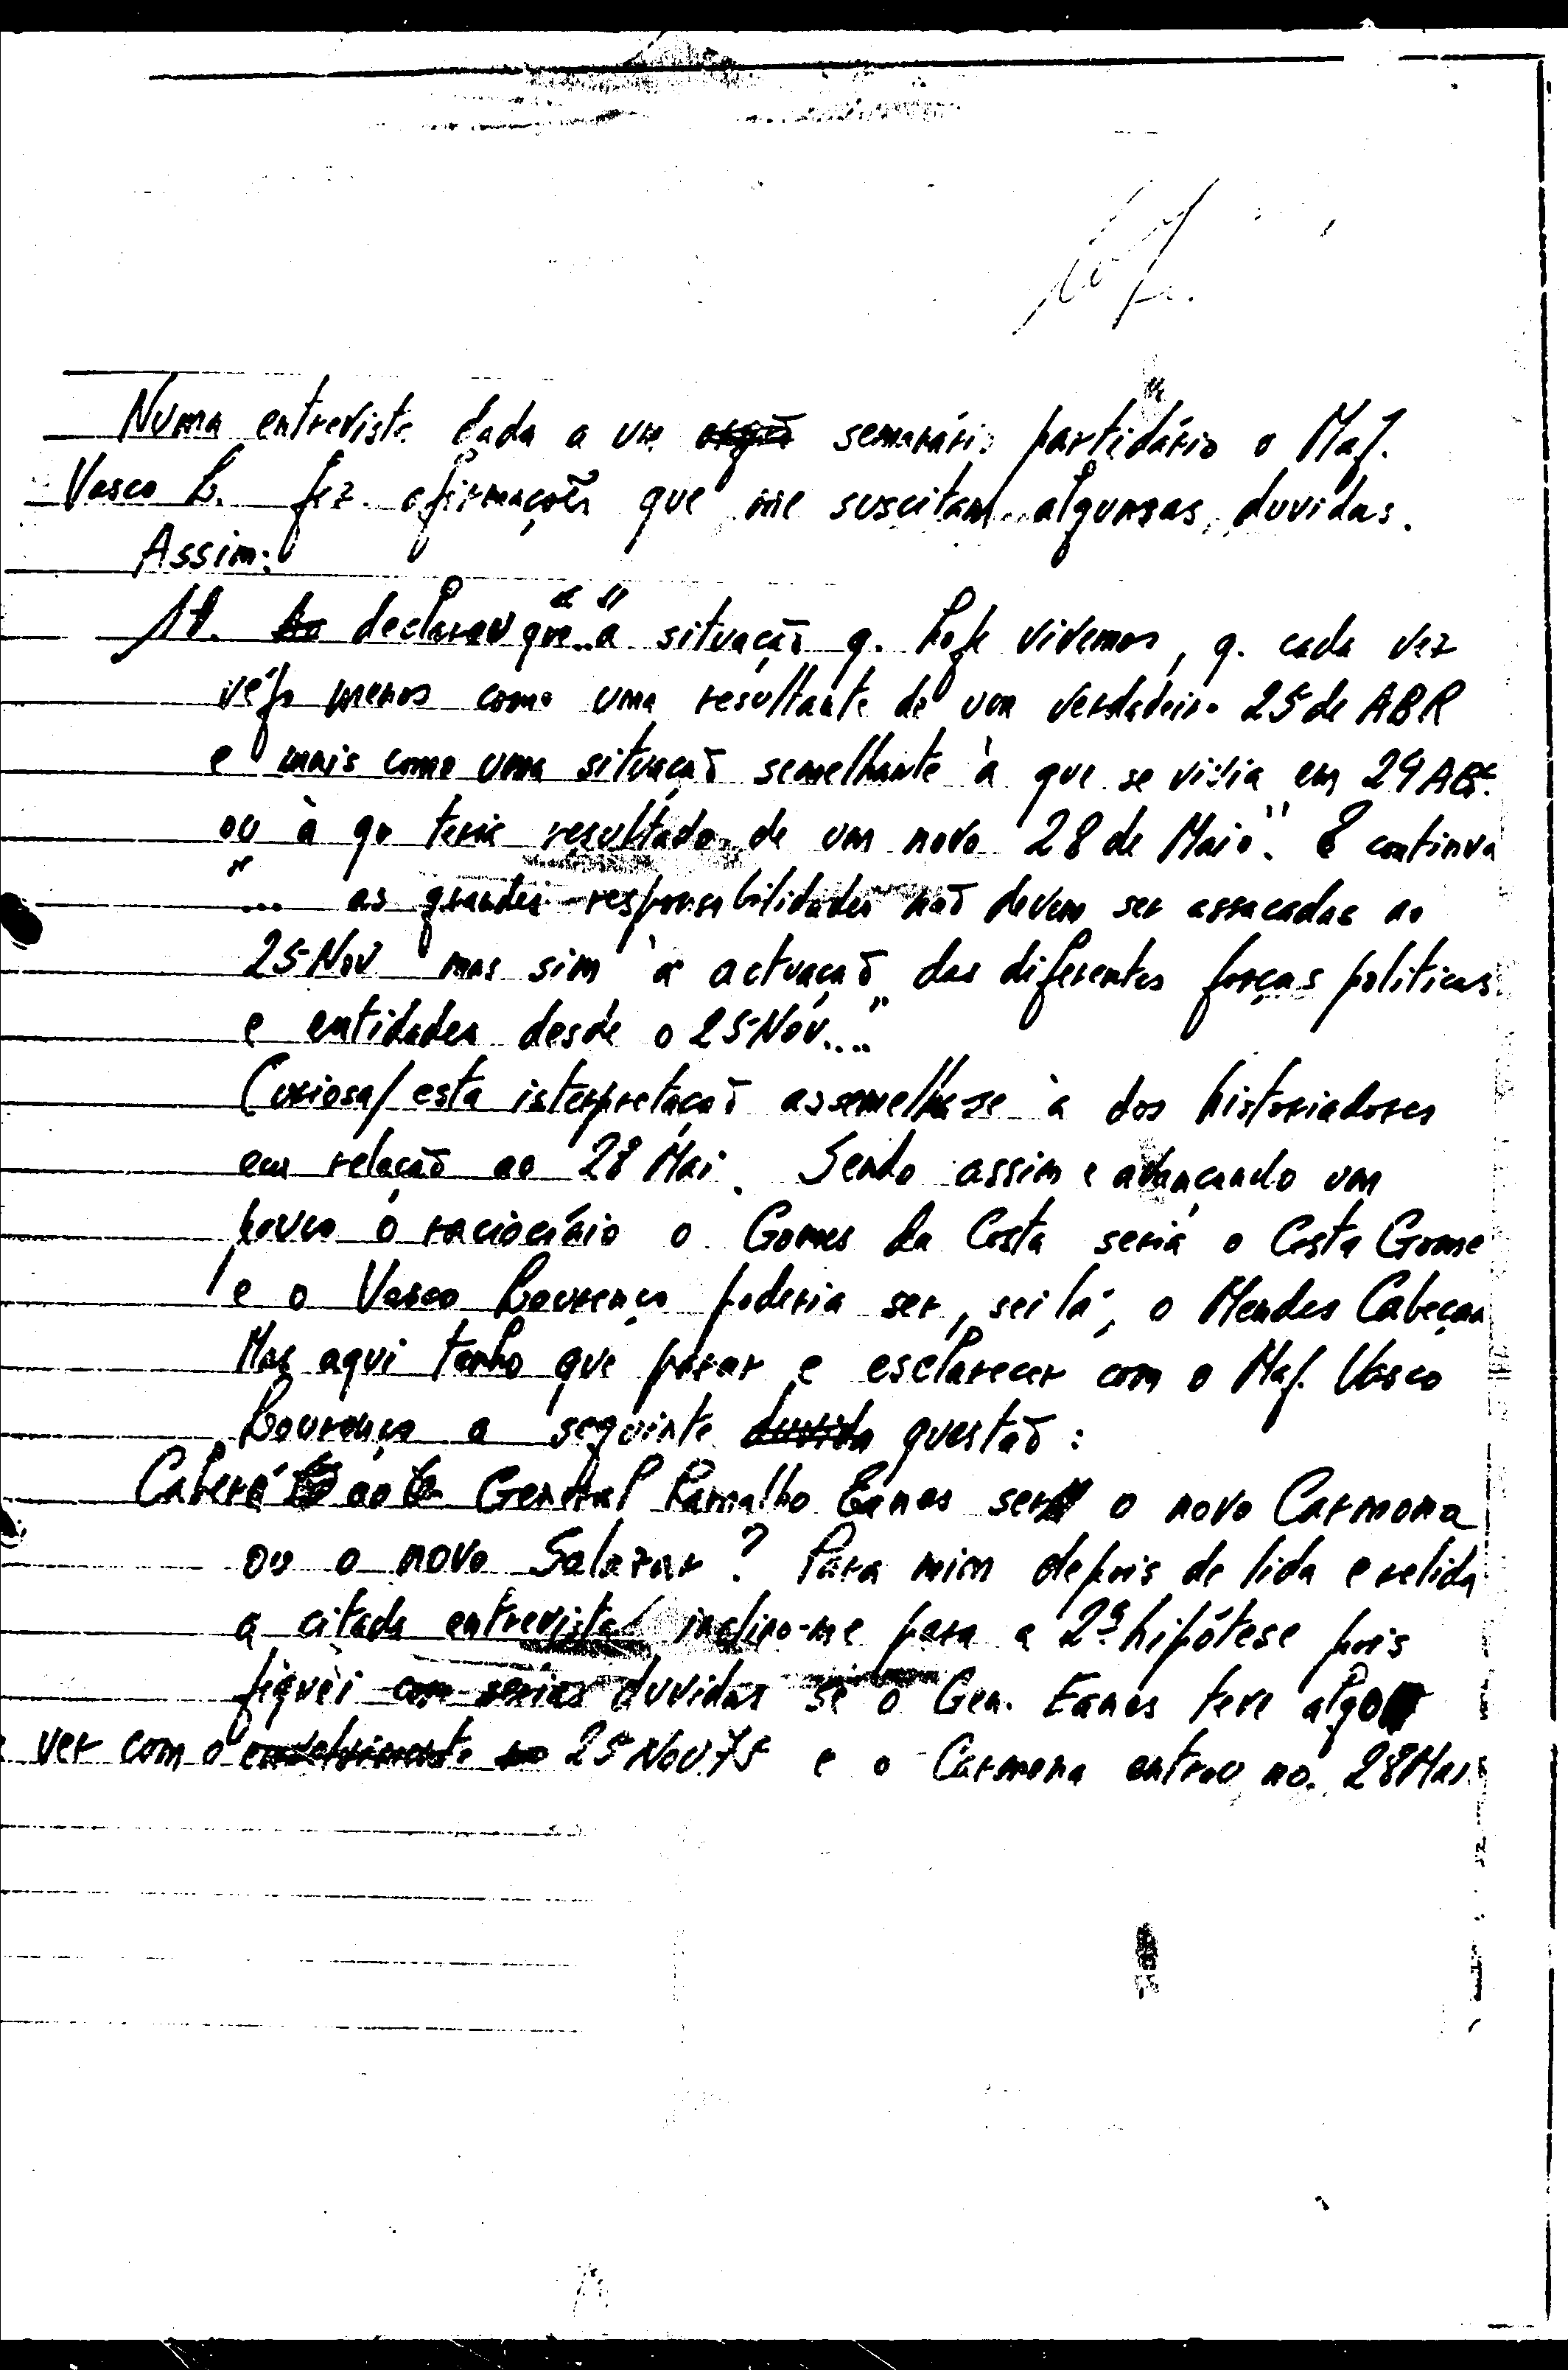 Numa entrevista dada a um semanário partidário o Maj.
Vasco L. fez afirmações que me suscitam algumas duvidas.
Assim:
1º. declarou que "..a situação q. hoje vivemos, q. cada vez
vejo menos como uma resultante de um verdadeiro 25 de ABR
e mais como uma situação semelhante à que se vivia em 24 ABR.
ou à que teria resultado de um novo 28 de Maio". E continua
"... as grandes responsabilidades não devem ser assacadas ao
25 Nov mas sim à actuação das diferentes forças politicas
e entidades desde o 25 Nov..."
Curiosa/ esta interpretação assemelha-se à dos historiadores
em relação ao 28 Mai. Sendo assim e avançando um
pouco o raciocínio o Gomes da Costa seria o Costa Gome
e o Vasco Lourenço poderia ser, sei lá, o Mendes Cabeçan
Mas aqui tenho que parar e esclarecer com o Maj. Vasco
Lourenço a seguinte duvida questão:
Caberá ao General Ramalho Eanes ser o novo Carmona
ou o novo Salazar? Para mim depois de lida e relida
a citada entrevista inclino-me para a 2ª hipótese pois
fiquei com serias duvidas se o Gen. Eanes teve algo
ver com o envolvimento no 25 Nov 75 e o Carmona entrou no 28 Mai.